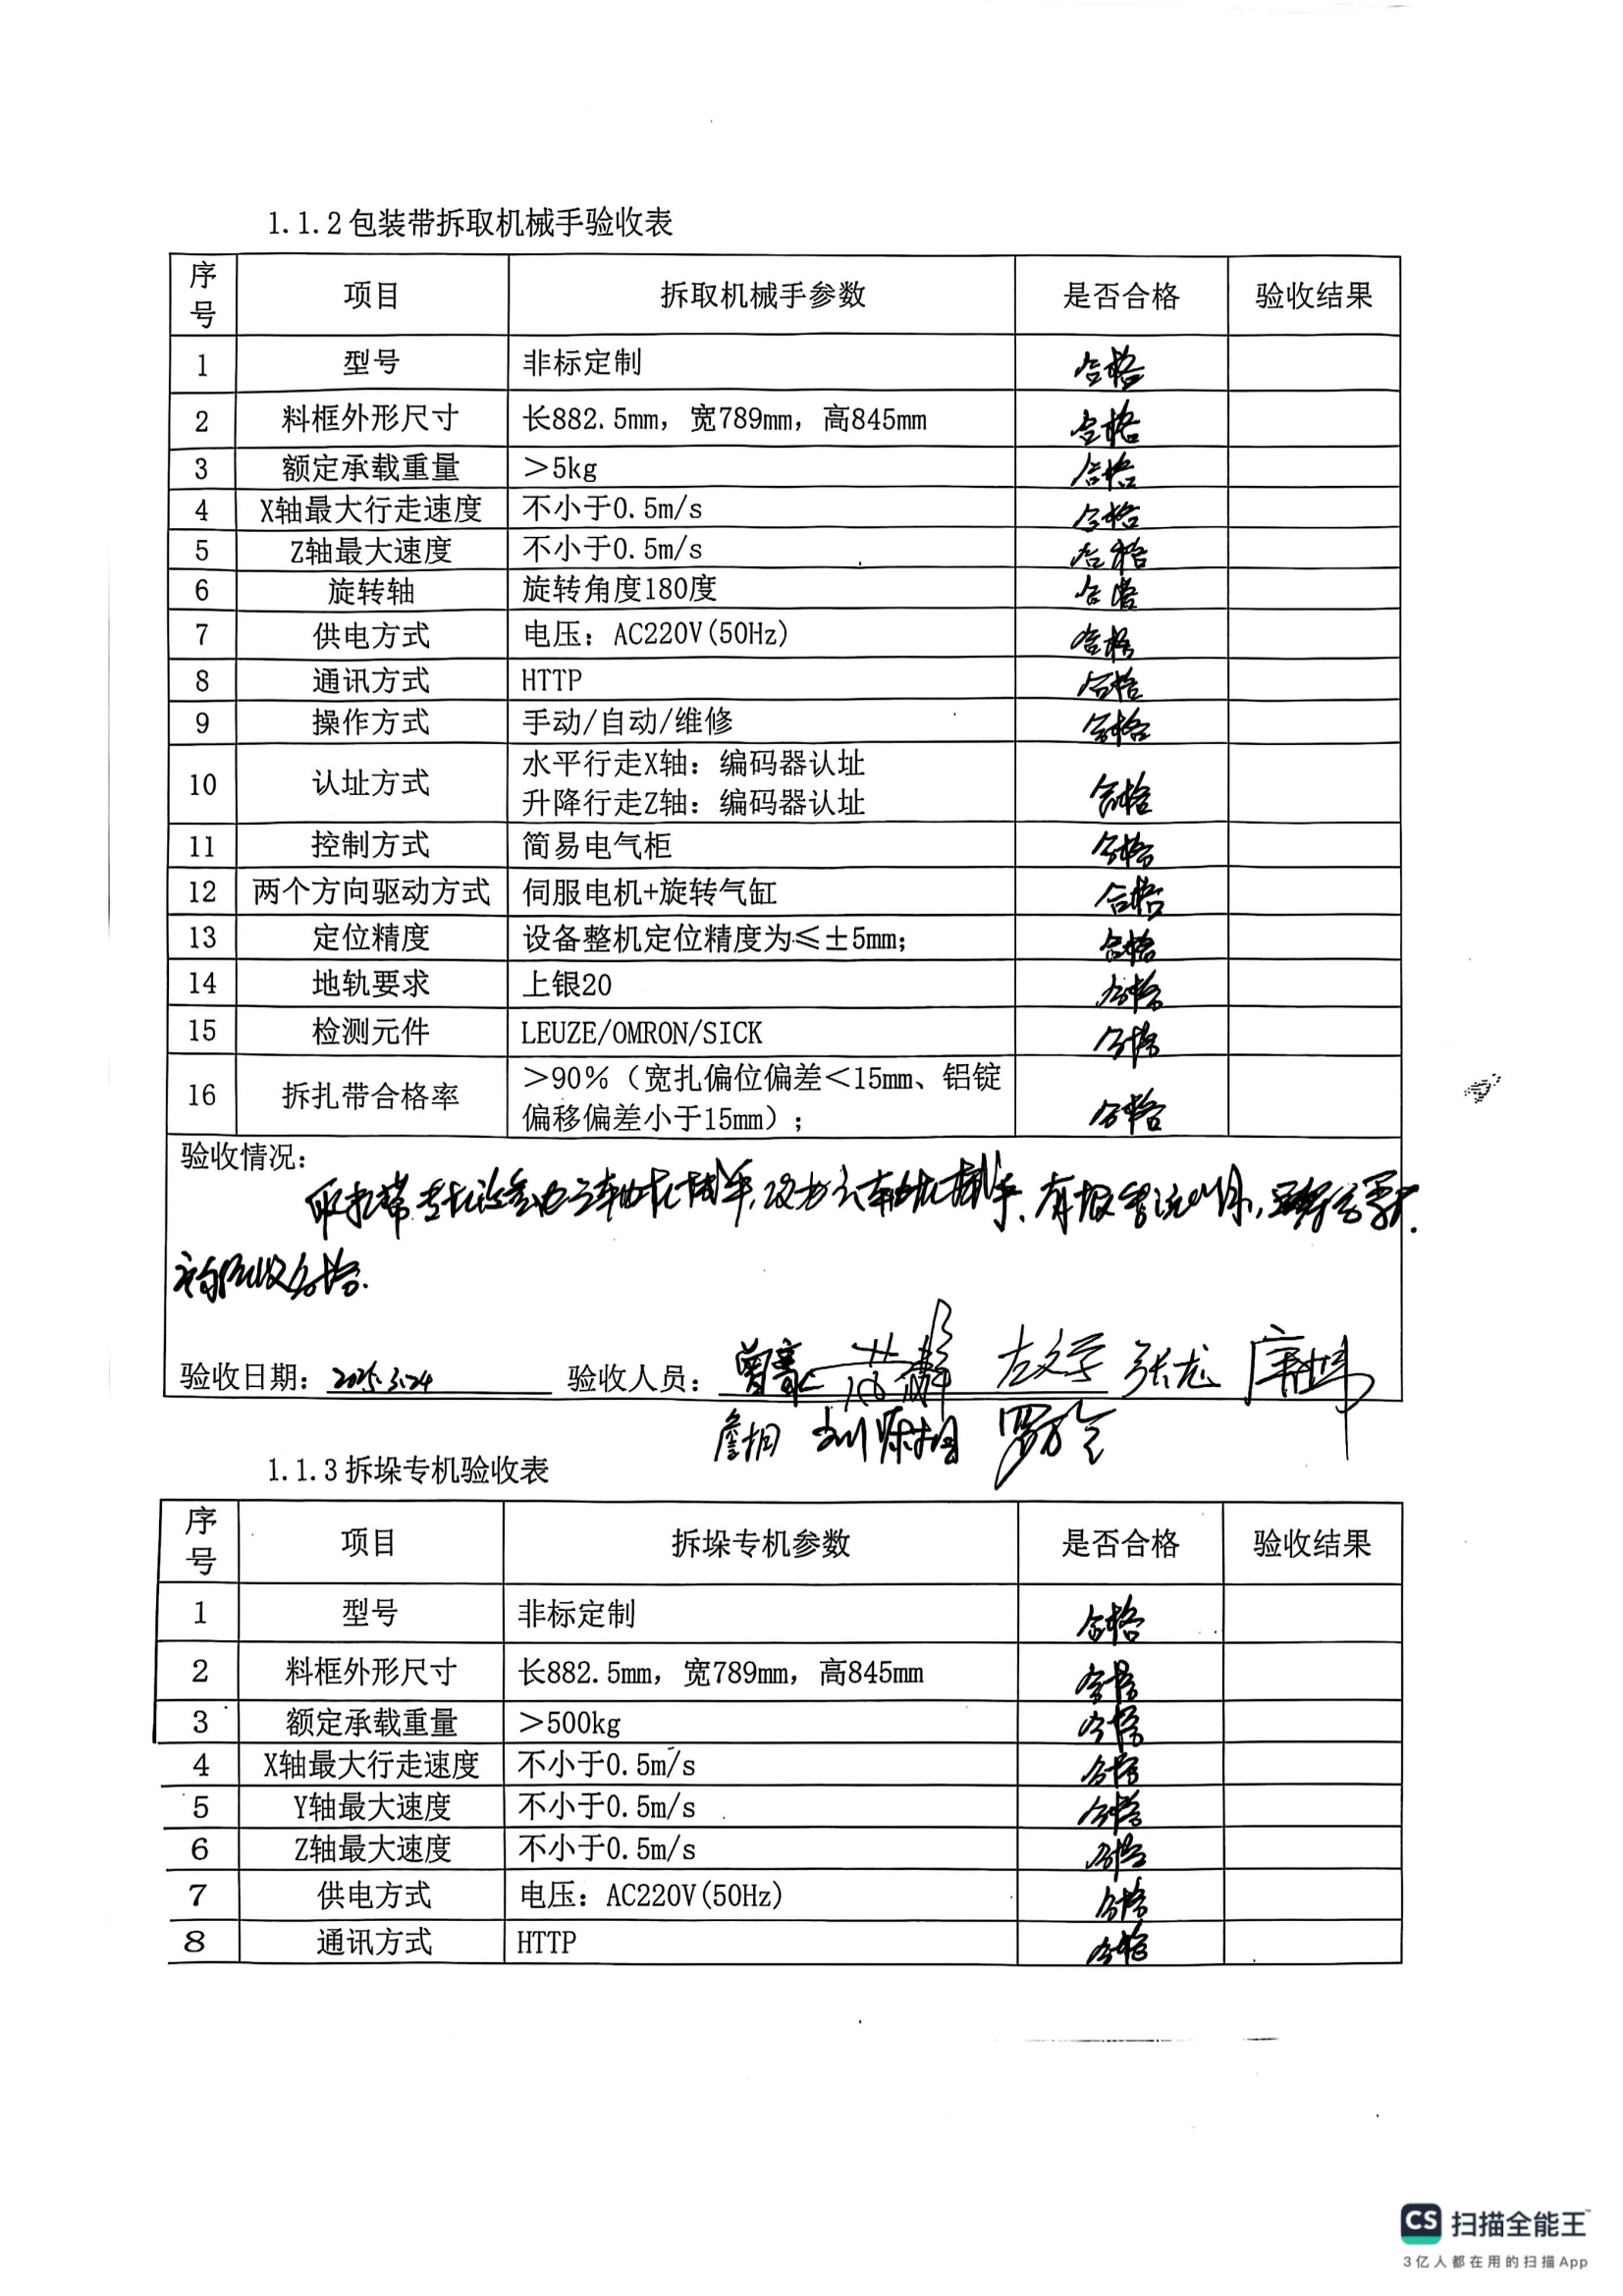 1.1.2包装带拆取机械手验收表
序号 项目 拆取机械手参数 是否合格 验收结果
1 型号 非标定制 合格
2 料框外形尺寸 长882.5mm，宽789mm，高845mm 合格
3 额定承载重量 ＞5kg 合格
4 X轴最大行走速度 不小于0.5m/s 合格
5 Z轴最大速度 不小于0.5m/s 合格
6 旋转轴 旋转角度180度 合格
7 供电方式 电压：AC220V(50Hz) 合格
8 通讯方式 HTTP 合格
9 操作方式 手动/自动/维修 合格
10 认址方式 水平行走X轴：编码器认址
升降行走Z轴：编码器认址 合格
11 控制方式 简易电气柜 合格
12 两个方向驱动方式 伺服电机+旋转气缸 合格
13 定位精度 设备整机定位精度为≤±5mm； 合格
14 地轨要求 上银20 合格
15 检测元件 LEUZE/OMRON/SICK 合格
16 拆扎带合格率 ＞90％（宽扎偏位偏差＜15mm、铝锭
偏移偏差小于15mm）； 合格
验收情况：
取扎带专机设备由三轴机械手，改为六轴机械手，有报
验收合格.
验收日期：2025.3.24 验收人员： 左文学 张龙
罗
1.1.3拆垛专机验收表
序号 项目 拆垛专机参数 是否合格 验收结果
1 型号 非标定制 合格
2 料框外形尺寸 长882.5mm，宽789mm，高845mm 合格
3 额定承载重量 ＞500kg 合格
4 X轴最大行走速度 不小于0.5m/s 合格
5 Y轴最大速度 不小于0.5m/s 合格
6 Z轴最大速度 不小于0.5m/s 合格
7 供电方式 电压：AC220V(50Hz) 合格
8 通讯方式 HTTP 合格
CS 扫描全能王
3亿人都在用的扫描App